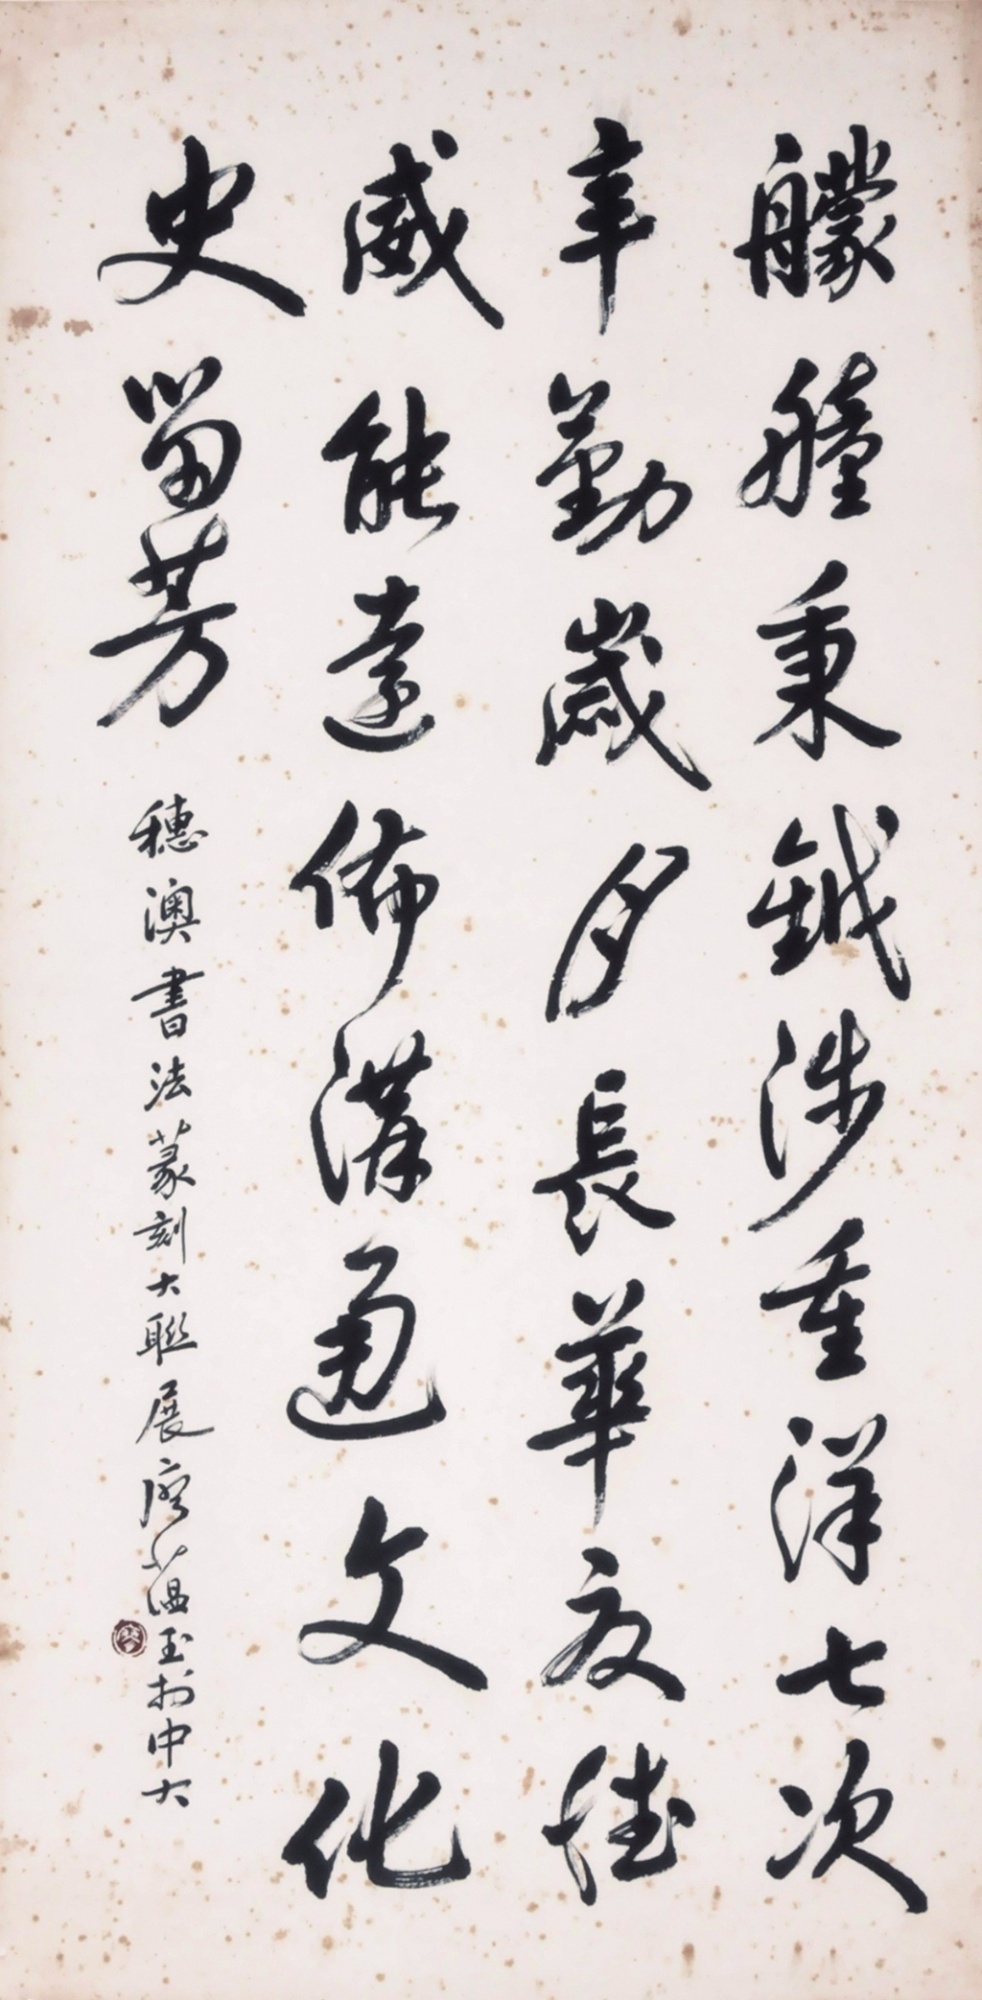 艨艟秉鉞涉重洋七次
辛勤歲月長華夏德
威能遠佈溝通文化
史留芳
穗澳書法篆刻大聯展廖蘊玉於中大